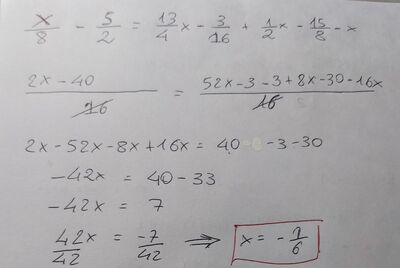 x/8 - 5/2 = 13/4 x - 3/16 + 1/2 x - 15/8 - x
2x - 40 / 16 = 52x - 3 - 3 + 8x - 30 - 16x / 16
2x - 52x - 8x + 16x = 40 - 3 - 30
-42x = 40 - 33
-42x = 7
42x/42 = -7/42 ⇒ x = - 1/6